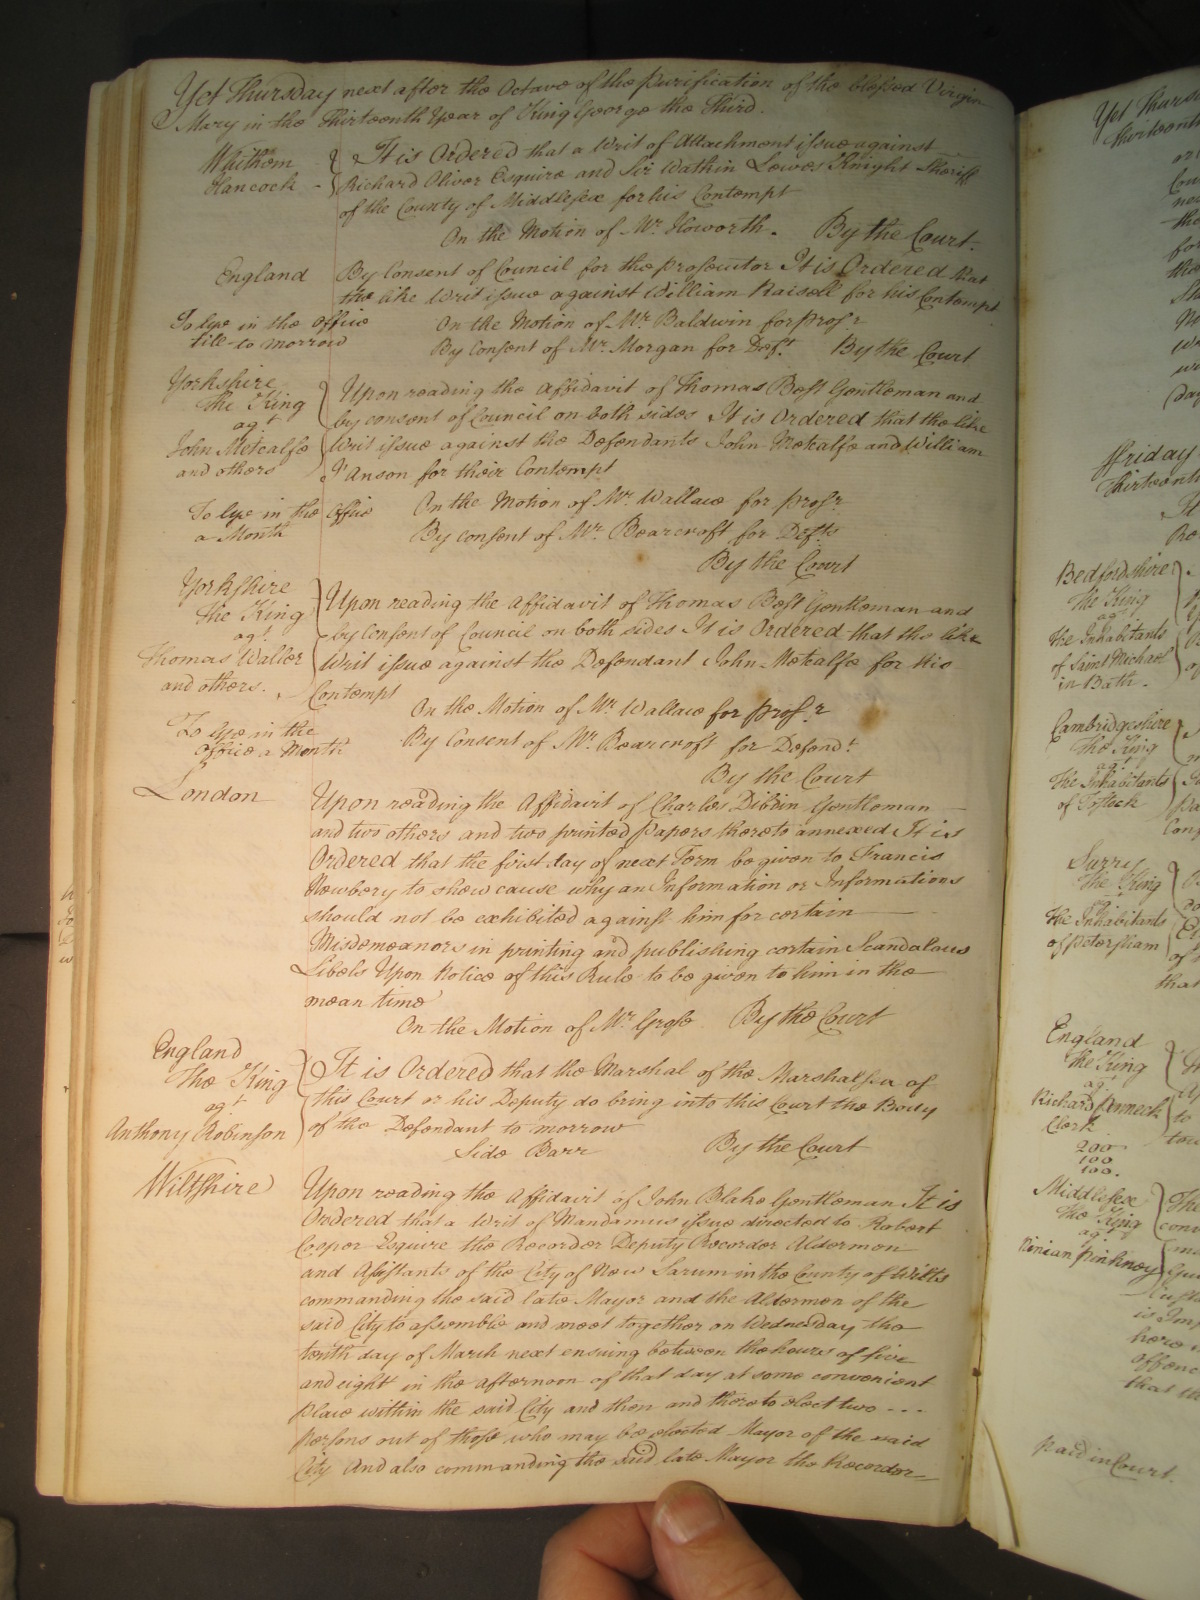 Yet Thursday next after the Octave of the Purification of the blessed Virgin
Mary in the Thirteenth Year of King George the Third.
Whithem
Hancock
It is Ordered that a Writ of Attachment issue against
Richard Oliver Esquire and Sir Watkin Lewes Knight Sheriff
of the County of Middlesex for his Contempt
On the Motion of Mr. Howorth. By the Court.
England
By Consent of Council for the prosecutor It is Ordered that
the like Writ issue against William Raisell for his Contempt
To lye in the Office
till to morrow
On the Motion of Mr. Baldwin for Prosr
By Consent of Mr. Morgan for Deft. By the Court
Yorkshire
The King
agt
John Metcalfe
and others
Upon reading the Affidavit of Thomas Best Gentleman and
by consent of Council on both sides It is Ordered that the like
Writ issue against the Defendants John Metcalfe and William
I'Anson for their Contempt
To lye in the Office
a Month
On the Motion of Mr. Wallace for Prosr
By consent of Mr. Bearcroft for Defts
By the Court
Yorkshire
The King
agt.
Thomas Waller
and others.
Upon reading the Affidavit of Thomas Best Gentleman and
by Consent of Council on both sides It is Ordered that the like
Writ issue against the Defendant John Metcalfe for his
Contempt
To lye in the
Office a Month
On the Motion of Mr. Wallace for Prosr
By Consent of Mr. Bearcroft for Defendt.
By the Court
London
Upon reading the Affidavit of Charles Dibdin Gentleman
and two others and two printed papers thereto annexed It is
Ordered that the first day of next Term be given to Francis
Newbery to shew cause why an Information or Informations
should not be exhibited against him for certain
Misdemeanors in printing and publishing certain Scandalous
Libels Upon Notice of this Rule to be given to him in the
mean time
On the Motion of Mr. Grose By the Court
England
The King
agt
Anthony Robinson
It is Ordered that the Marshal of the Marshalsea of
this Court or his Deputy do bring into this Court the Body
of the Defendant to morrow
Side Barr By the Court
Wiltshire
Upon reading the Affidavit of John Blake Gentleman It is
Ordered that a Writ of Mandamus issue directed to Robert
Cooper Esquire the Recorder Deputy Recorder Aldermen
and Assistants of the City of New Sarum in the County of Wilts
commanding the said late Mayor and the Aldermen of the
said City to assemble and meet together on Wednesday the
tenth day of March next ensuing between the hours of five
and eight in the afternoon of that day at some convenient
place within the said City and then and there to elect two
persons out of those who may be elected Mayor of the said
City And also commanding the said late Mayor the Recorder
Yet Thurs
Thirteenth
Friday
Thirteenth
Bedfordshire
The King
agt
the Inhabitants
of Saint Michael
in Bath.
Cambridgeshire
The King
agt
The Inhabitants
of
Surry
The King
the Inhabitants
of Petersham
that
England
The King
agt
Richard Penneck
Clerk
200
100
100.
Middlesex
The King
agt
Ninian Pinkney
paid in Court.